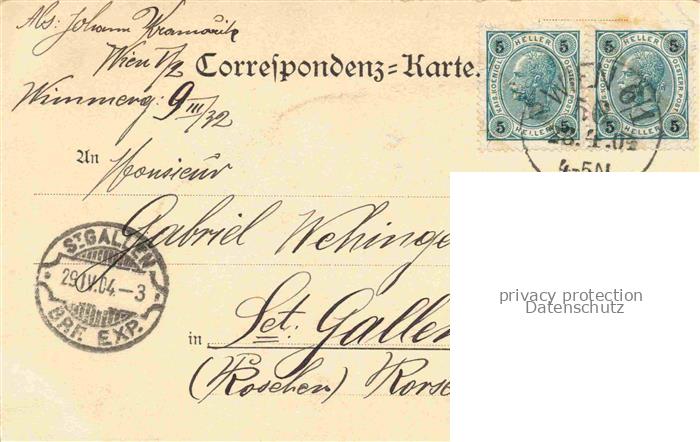 Abs: Johann Kramarik
Wien V/2
Wimmerg: 9 III/32
Correſpondenz=Karte.
5 HELLER 5
KAIS. KOENIGL. OESTERR. POST
5 HELLER 5
5 HELLER 5
KAIS. KOENIGL. OESTERR. POST
5 HELLER 5
WIEN
28.4.04
4-5N
An
Monsieur
Gabriel Wehinge
in
Sct. Gallen
(Roschen) Rors
ST GALLEN
29.IV.04.–3
BRF. EXP.
privacy protection
Datenschutz